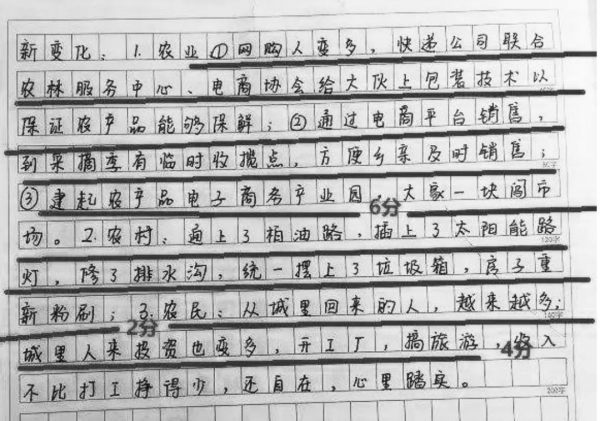 新变化：1.农业①网购人变多，快递公司联合
农林服务中心、电商协会给大伙上包装技术以
保证农产品能够保鲜；②通过电商平台销售，
到采摘季有临时收揽点，方便乡亲及时销售；
③建起农产品电子商务产业园，大家一块闯市
6分
场。2.农村：通上了柏油路，插上了太阳能路
灯，修了排水沟，统一摆上了垃圾箱，房子重
新粉刷；3.农民：从城里回来的人，越来越多；
2分
城里人来投资也变多，开工厂，搞旅游，收入
4分
不比打工挣得少，还自在，心里踏实。
200字